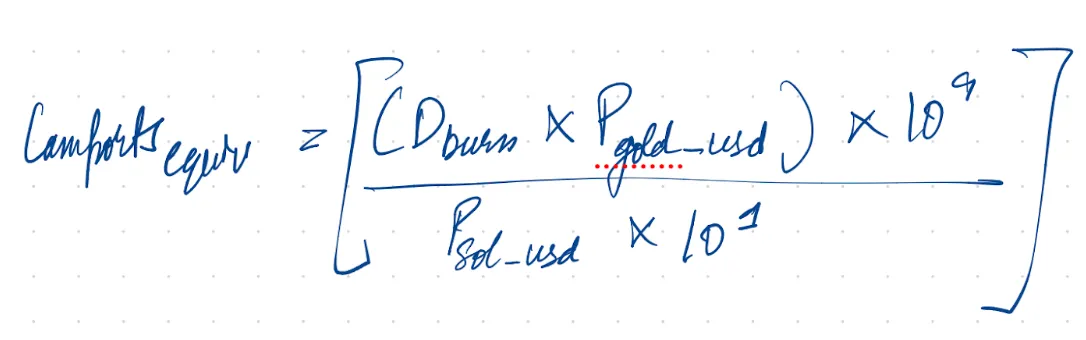 Lamports_equiv = [ (D_burn × P_gold_usd) × 10^9 / P_sol_usd × 10^1 ]